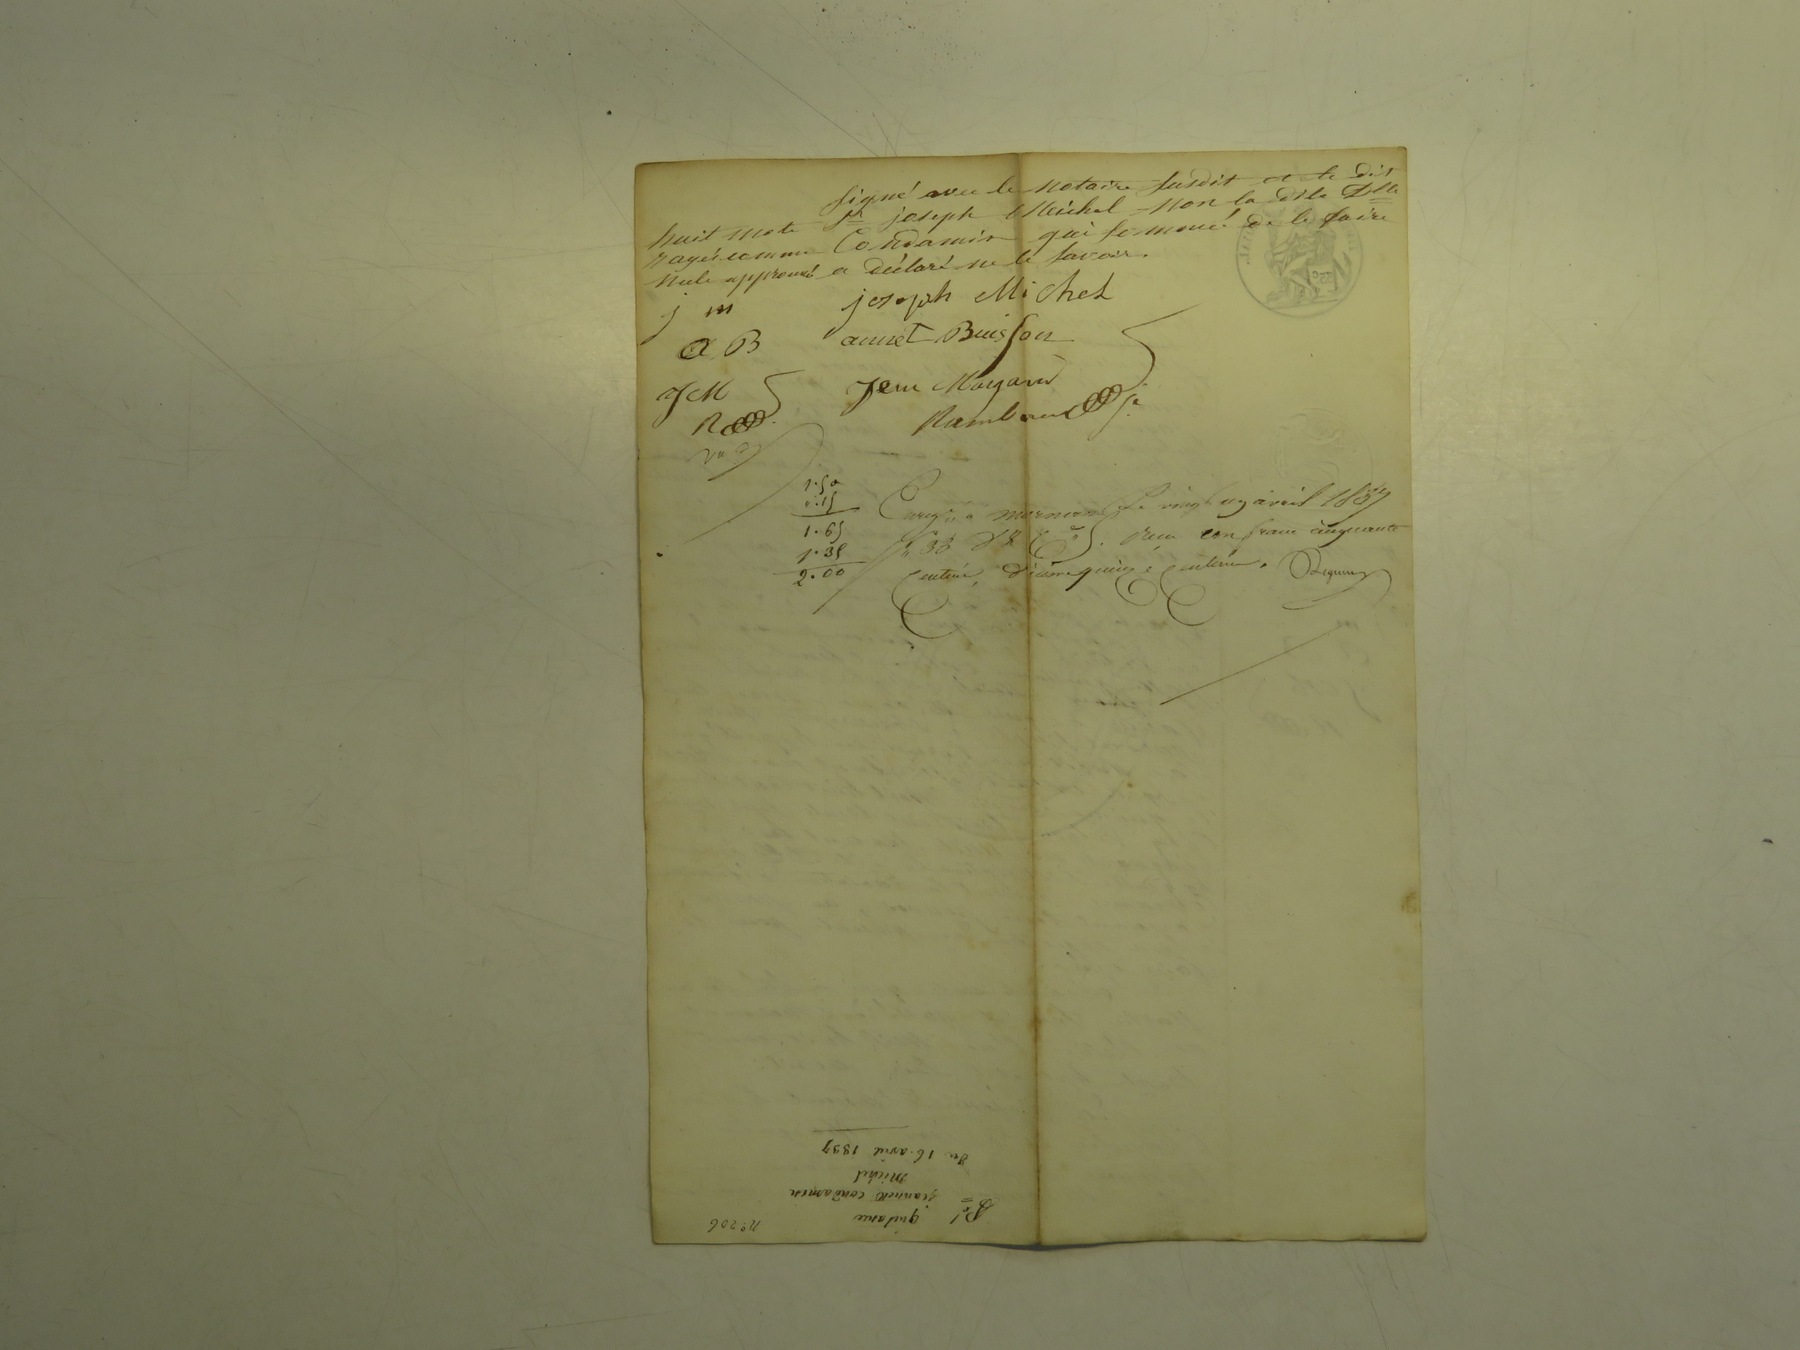 signé avec le notaire susdit et le dit
huit mots sr joseph Michel non la dite Dlle
rayés comme Condamin qui somméé de le faire
nuls approuvés a déclaré ne le savoir.
j m joseph Michel
a B annet Buisson
JM Jean Mayard
R Rambaud
1.50
0.15
1.65
1.35
2.00
Enregé à mornant le vingt un avril 1837
Reçu un franc cinquante
Centimes, décime quinze centimes.
n° 206
quitance
jeannete condamin
Michel
Du 16 avril 1837